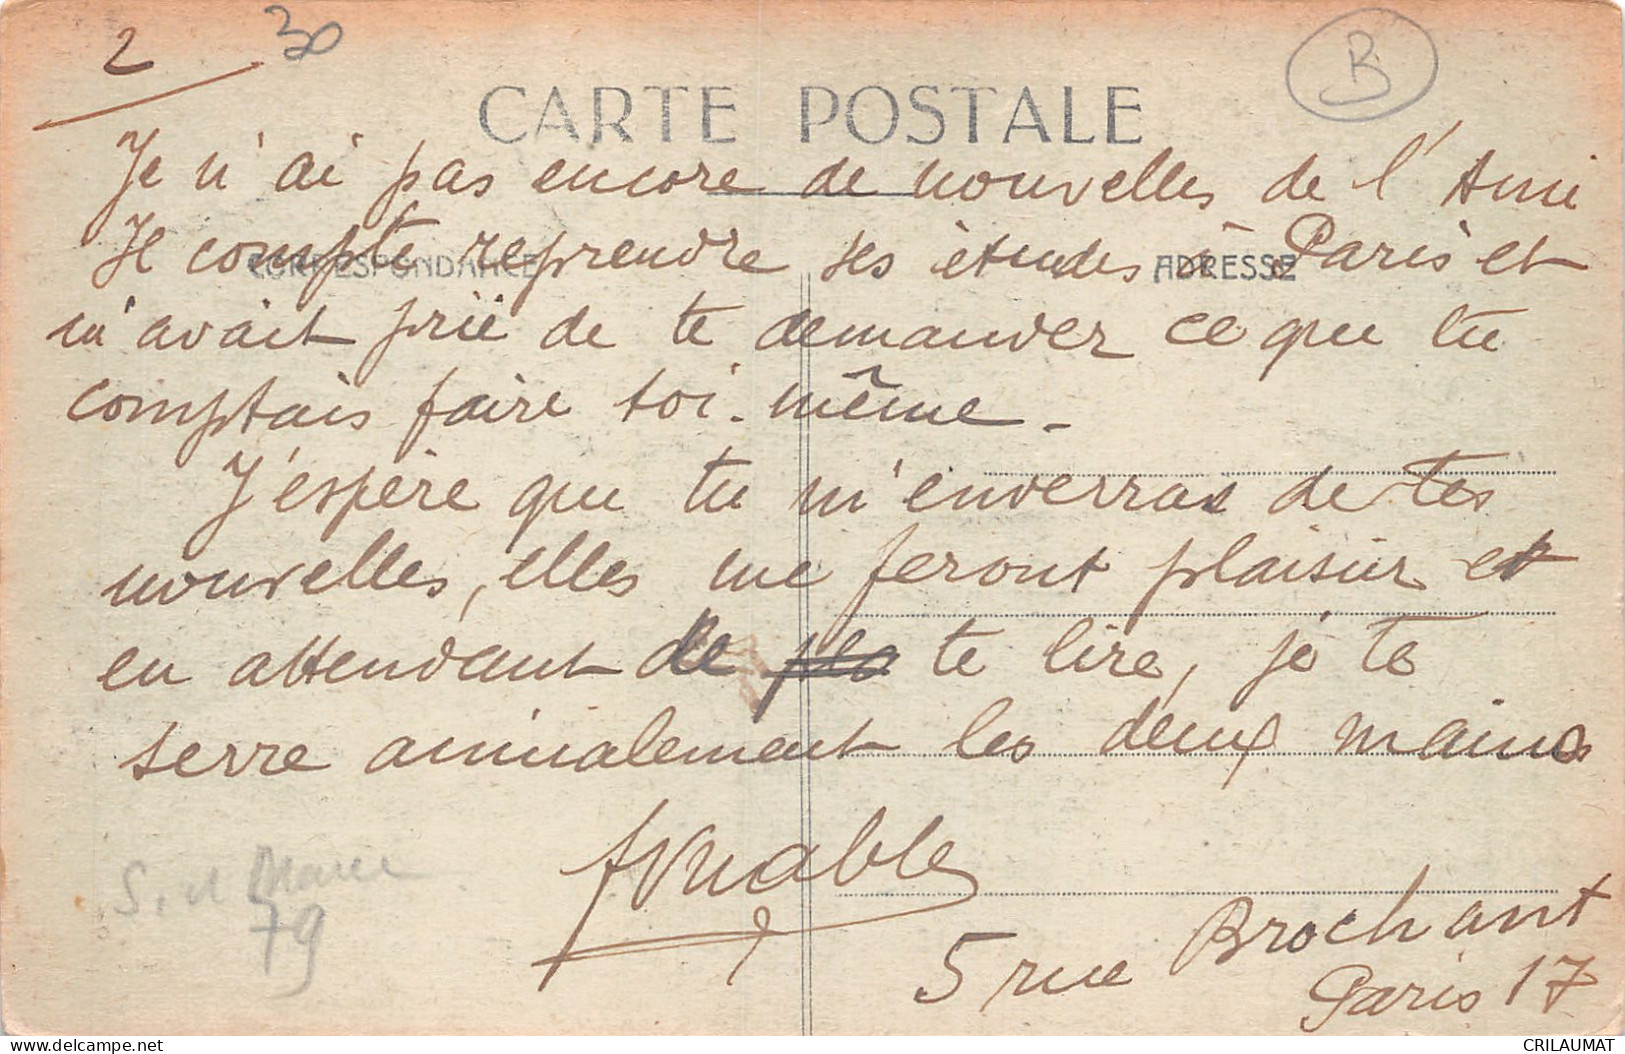 2 30
B
CARTE POSTALE
Je n'ai pas encore de nouvelles de l'Ami
CORRESPONDANCE
ADRESSE
Il compte reprendre ses études à Paris et
m'avait prié de te demander ce que tu
comptais faire toi-même -
J'espère que tu m'enverras de tes
nouvelles, elles me feront plaisir et
en attendant de te lire, je te
serre amicalement les deux mains
5 rue Brochant
Paris 17
S. et Marne
79
CRILAUMAT